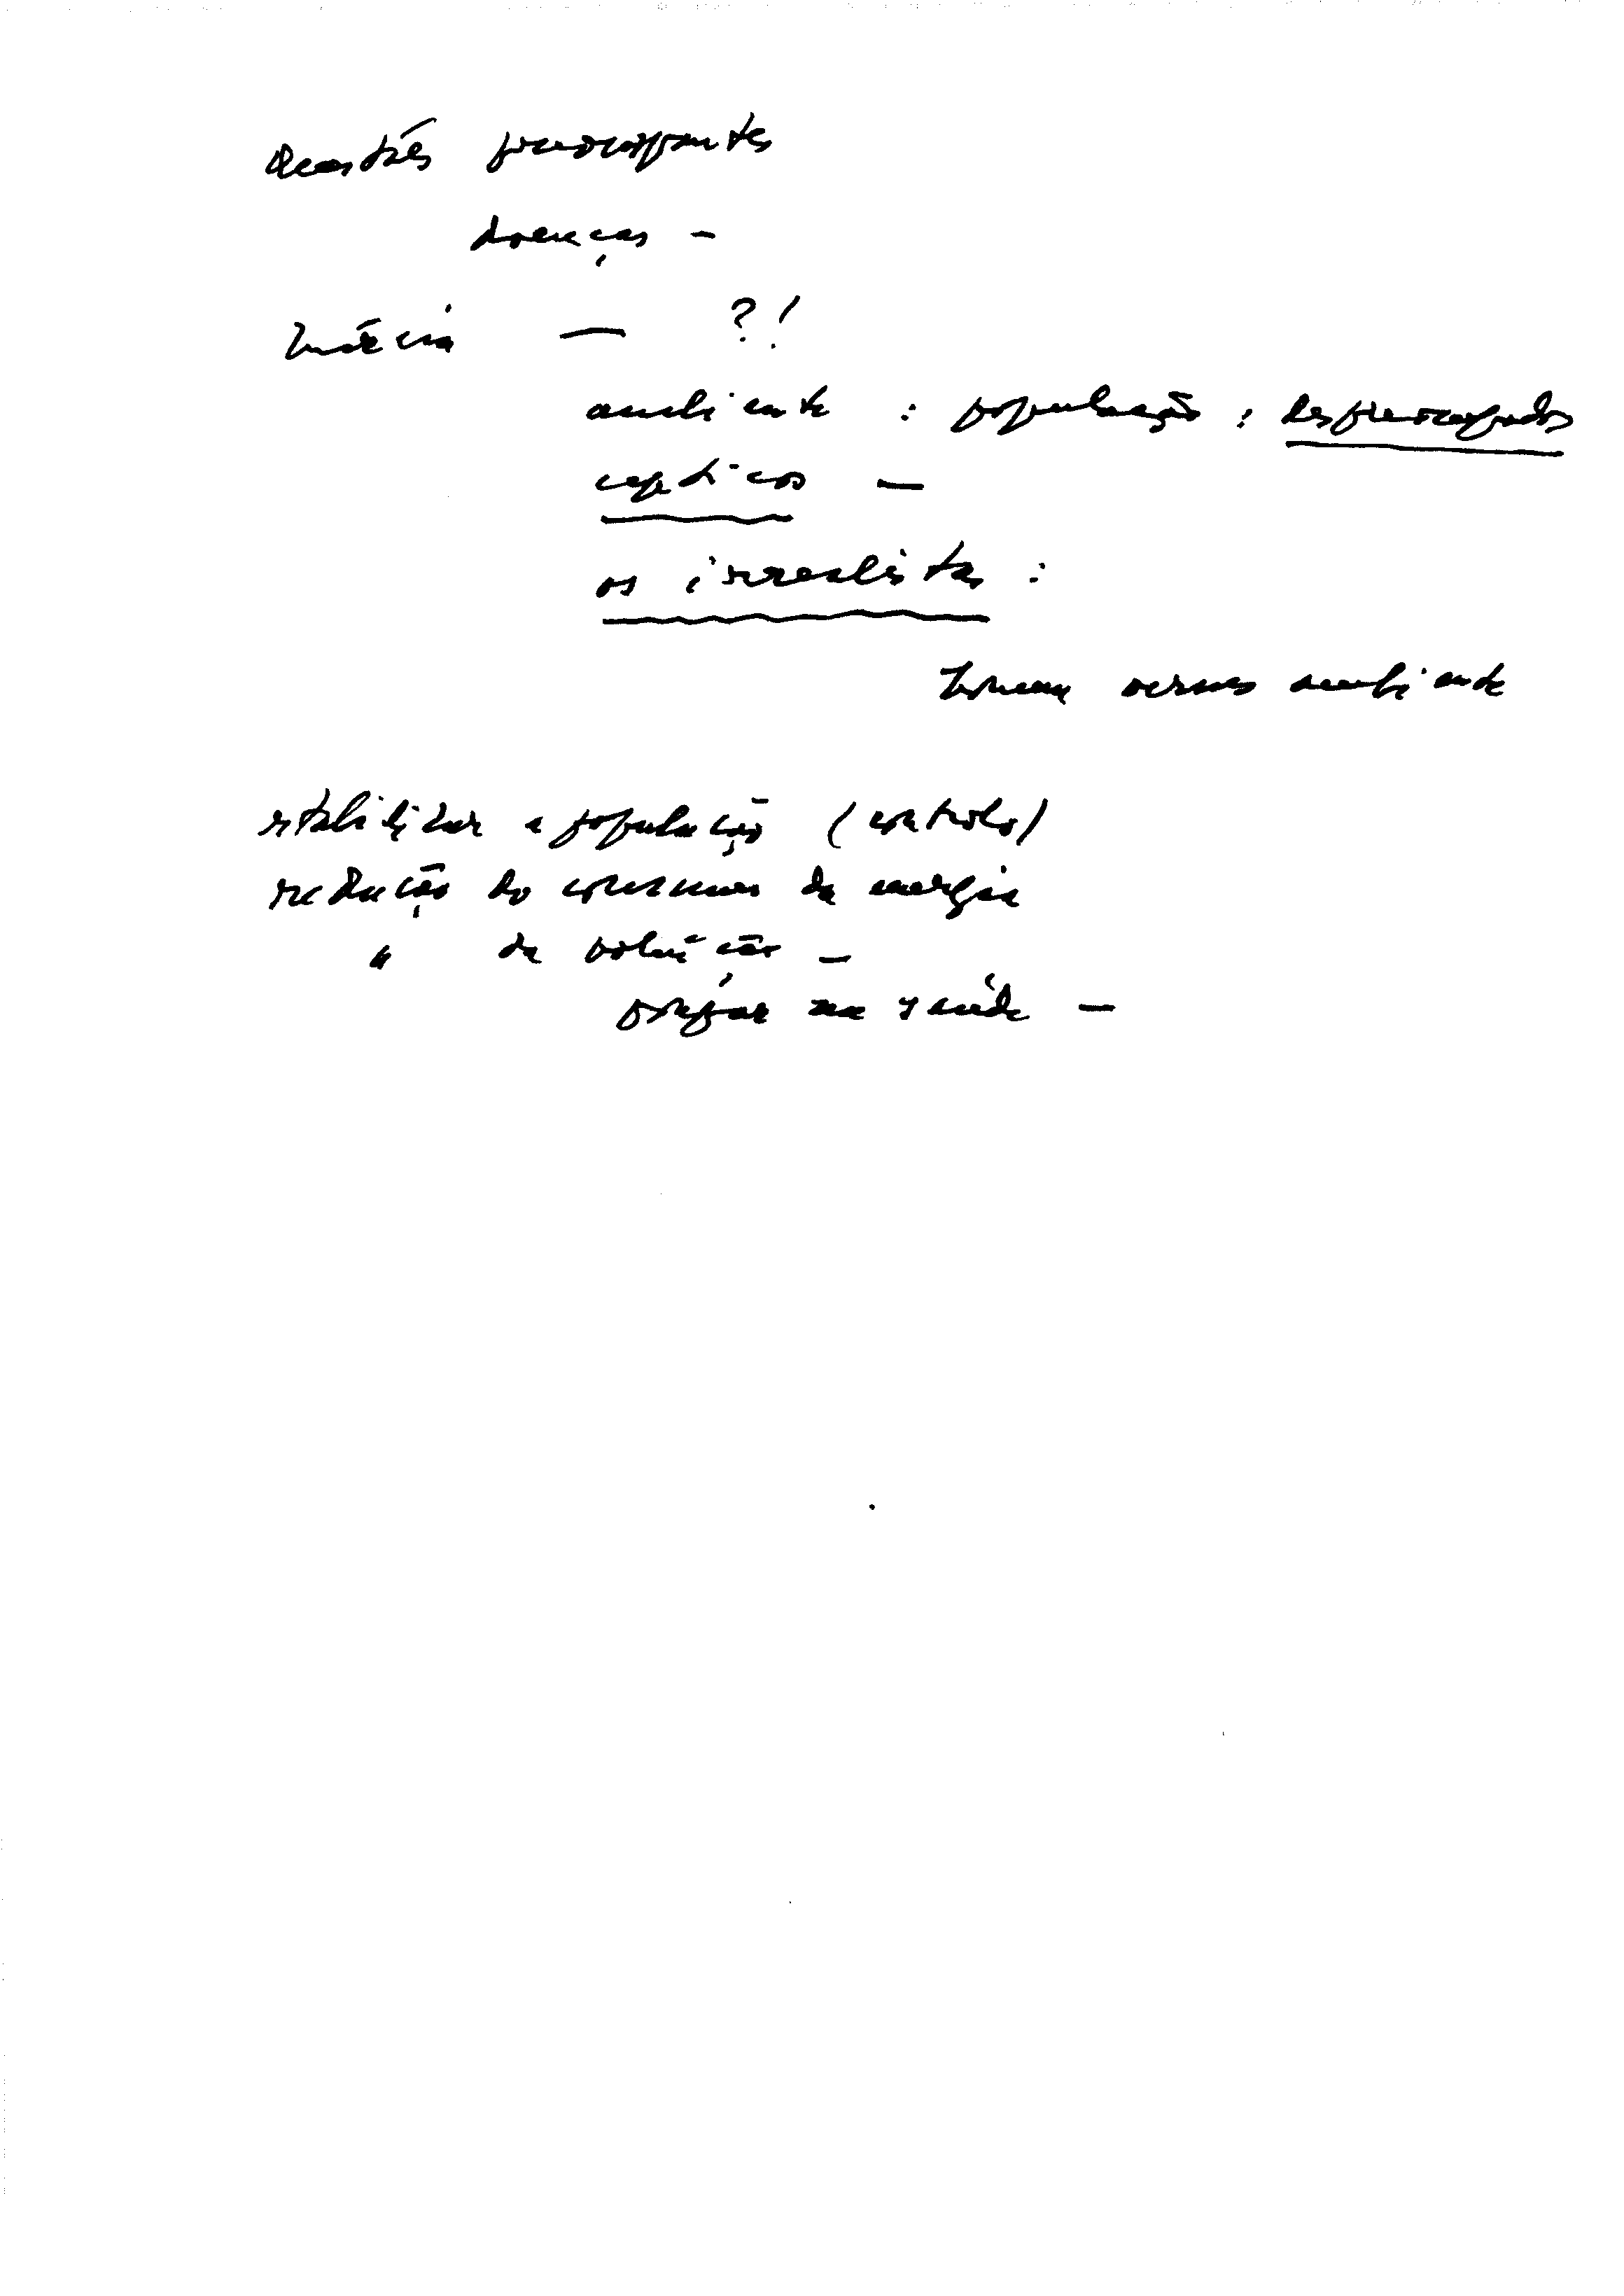 Questões preocupantes
doenças -
Inércia — ?!
ambiente : população : despreocupados
cepticos —
os irrealistas :
homem versus ambiente
estabilizar a população (controlo)
redução do consumo de energia
" da poluição -
poupar na saúde -